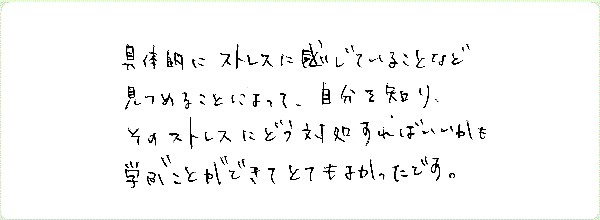 具体的にストレスに感じていることなど
見つめることによって、自分を知り、
そのストレスにどう対処すればいいかも
学ぶことができてとてもよかったです。